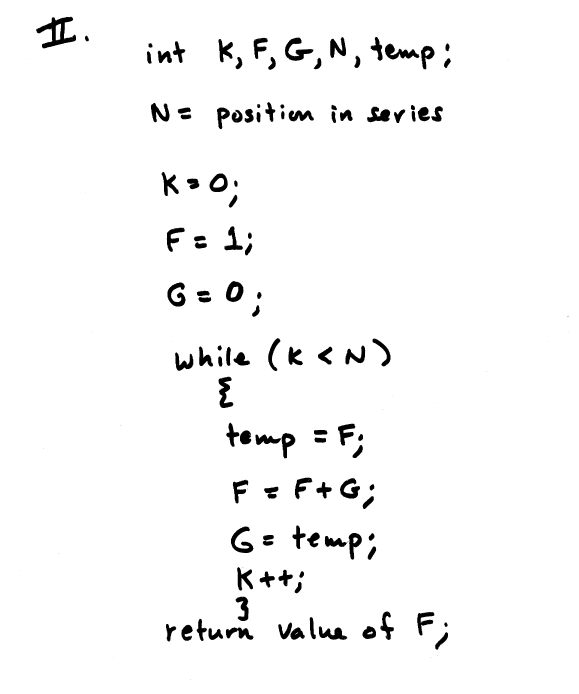 II.
int K, F, G, N, temp;
N = position in series
K = 0;
F = 1;
G = 0;
while (K < N)
{
temp = F;
F = F + G;
G = temp;
K++;
}
return value of F;